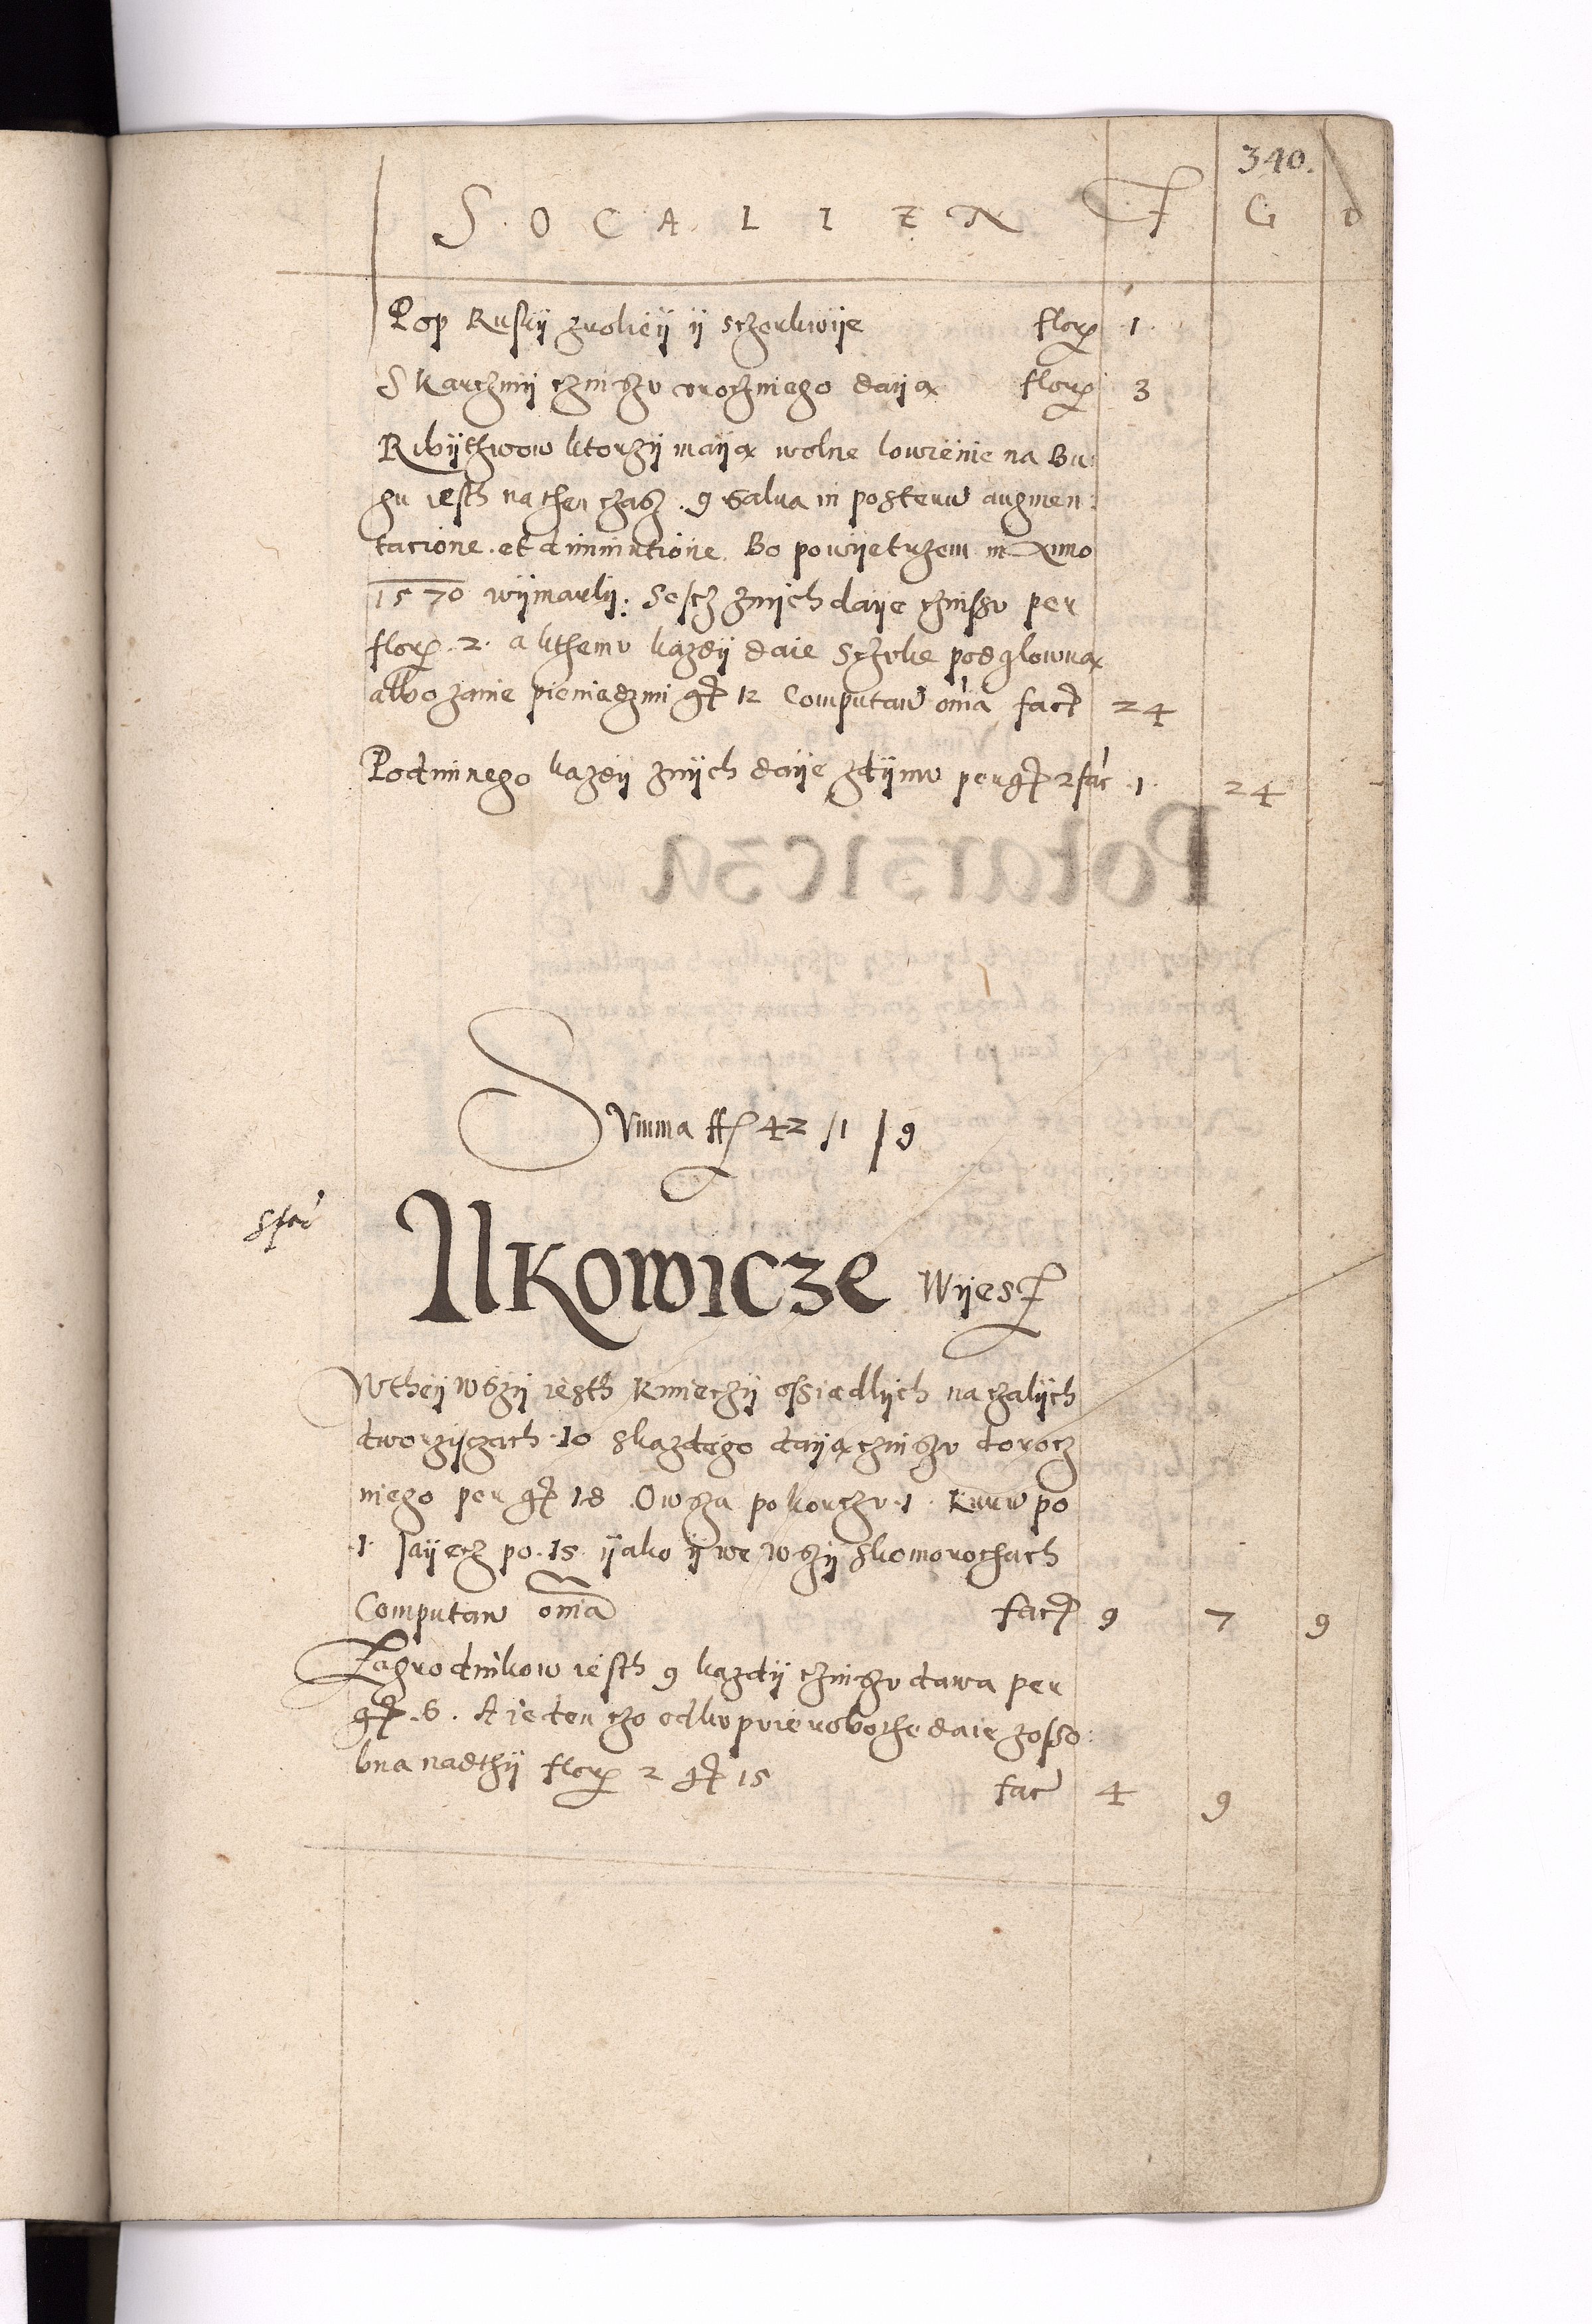 340.
SOCALIEN F G D
Pop Ruskij zrolieij ij sczerkwije flor 1.
S Karczmij czinszu rocznego daija flor 3
Ribijthwow ktorzij maija wolne lowienie na Bu:
gu iesth na then czasz .9 salua in posterum augmen:
tacione et diminutione. Bo powijetrzem in Anno
1570 wijmarlij: Sescz znijch daije czinssu per
flor. 2. a kthemu kazdij daie Sczuke podglowna
albo zanie pieniedzmi gr 12 Computand omia fact 24
Podimnego kazdij znijch daije zdijmu per gr 2 fac 1. 24
Summa ff 42 / 1 / 9
Ilkowicze Wijes
Wtheij wszij iesth kmieczij ossiadlijch na czalijch
dworzijsczach 10 skazdego daija czinszu dorocz
niego per gr 18 Owsza po korczu 1. Kurw po
1. Jaijecz po 15 ijako ij we wszij Skomorochach
Computan omia fact 9 7 9
Zagrodnikow iesth 9 kazdij czinszu dawa per
gr .6. A ieden czo odkupuie robothe daie zosso:
bna nadthij flor 2 gr 15 fac 4 9